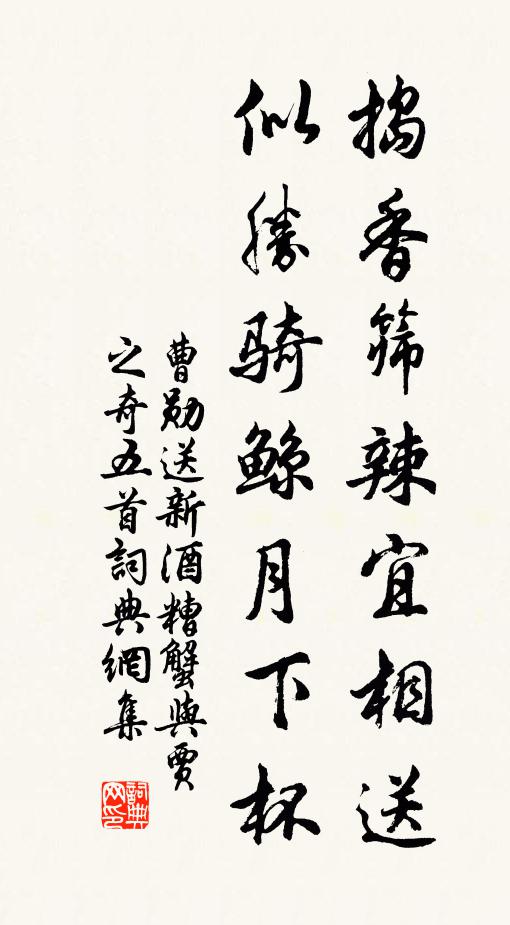 搗香篩辣宜相送
似勝騎鯨月下杯
曹勛送新酒糟蟹與賈
之奇五首詞典網集
詞典
网印